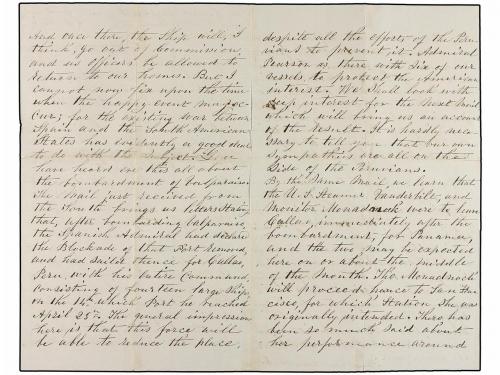 And once there, the Ship will, I
think, go out of Commission,
and us officers be allowed to
return to our homes. But I
cannot now fix upon the time
when the happy event may oc-
cur; for the existing war between
Spain and the South American
States has evidently a good deal
to do with the subject. You
have heard ere this all about
the bombardment of Valparaiso.
The mail just received from
the South brings us letters stating
that, after bombarding Valparaiso,
the Spanish Admiral had declared
the Blockade of that Port removed,
and had sailed thence for Callao,
Peru, with his entire Command,
Consisting of fourteen large Ships,
on the 14th which Port he reached
April 25th. The general impression
here is that this force will
be able to reduce the place,
despite all the efforts of the Peru-
vians to prevent it. Admiral
Pearson is there with Six of our
vessels to protect the American
interest. We Shall look with
deep interest for the next mail
which will bring us an account
of the result. It is hardly nece-
ssary to tell you that our own
Sympathies are all on the
Side of the Peruvians.
By the Same Mail, we learn that
the U.S. Steamer Vanderbilt, and
Monitor Monadnock were to leave
Callao, immediately after the
bombardment, for Panama,
and the two may be expected
here on or about the middle
of the Month. The Monadnock
will proceed hence to San Fran
cisco, for which Station She was
originally intended. There has
been so much Said about
her performance around